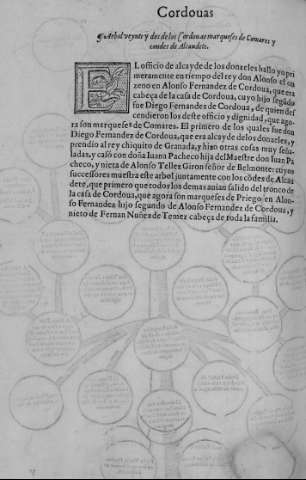 Cordouas
¶ Arbol veynte y dos de los Cordouas marqueses de Comares y
condes de Alcaudete.
EL officio de alcayde de los donzeles hallo yo pri
meramente en tiempo del rey don Alonso el on
zeno en Alonso Fernandez de Cordoua, que era
cabeça de la casa de Cordoua, cuyo hijo segũdo
fue Diego Fernandez de Cordoua, de quien de-
cendieron los deste officio y dignidad, que ago-
ra son marqueses de Comares. El primero de los quales fue don
Diego Fernandez de Cordoua, que era alcayde de los donzeles, y
prendio al rey chiquito de Granada, y hizo otras cosas muy seña-
ladas, y casò con doña Iuana Pacheco hija del Maestre don Iuan Pa
checo, y nieta de Alonso Tellez Giron señor de Belmonte: cuyos
successores muestra este arbol juntamente con los cõdes de Alcau
dete, que primero que todos los demas auian salido del tronco de
la casa de Cordoua, que agora son marqueses de Priego, en Alon-
so Fernandez hijo segundo de Alonso Fernandez de Cordoua, y
nieto de Fernan Nuñez de Temez cabeça de toda la familia.